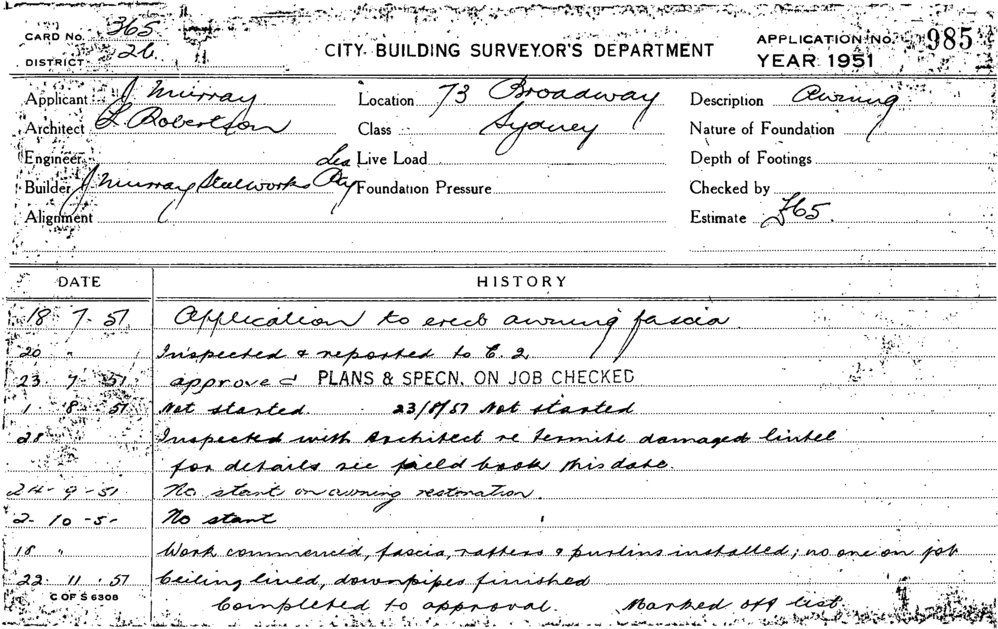 CARD No. 365
DISTRICT 26
CITY BUILDING SURVEYOR'S DEPARTMENT
APPLICATION No. 985
YEAR 1951
Applicant J Murray
Location 73 Broadway
Description Awning
Architect L Robertson
Class Sydney
Nature of Foundation
Engineer
Live Load
Depth of Footings
Builder J Murray Steelworks Pty
Foundation Pressure
Checked by
Alignment
Estimate £65.
DATE HISTORY
18 7. 51 Application to erect awning fascia
20 " Inspected & reported to C. 2.
23 7 51 approved PLANS & SPECN. ON JOB CHECKED
1 8. 51 Not started. 23/8/51 Not started
28 Inspected with Architect re termite damaged lintel
for details see field book this date.
24- 9 -51 No start on awning restoration.
2- 10 -5- No start
18 " Work commenced, fascia, rafters & purlins installed; no one on job
22. 11. 51 Ceiling lined, downpipes finished
C OF S 6308
Completed to approval. Marked off list